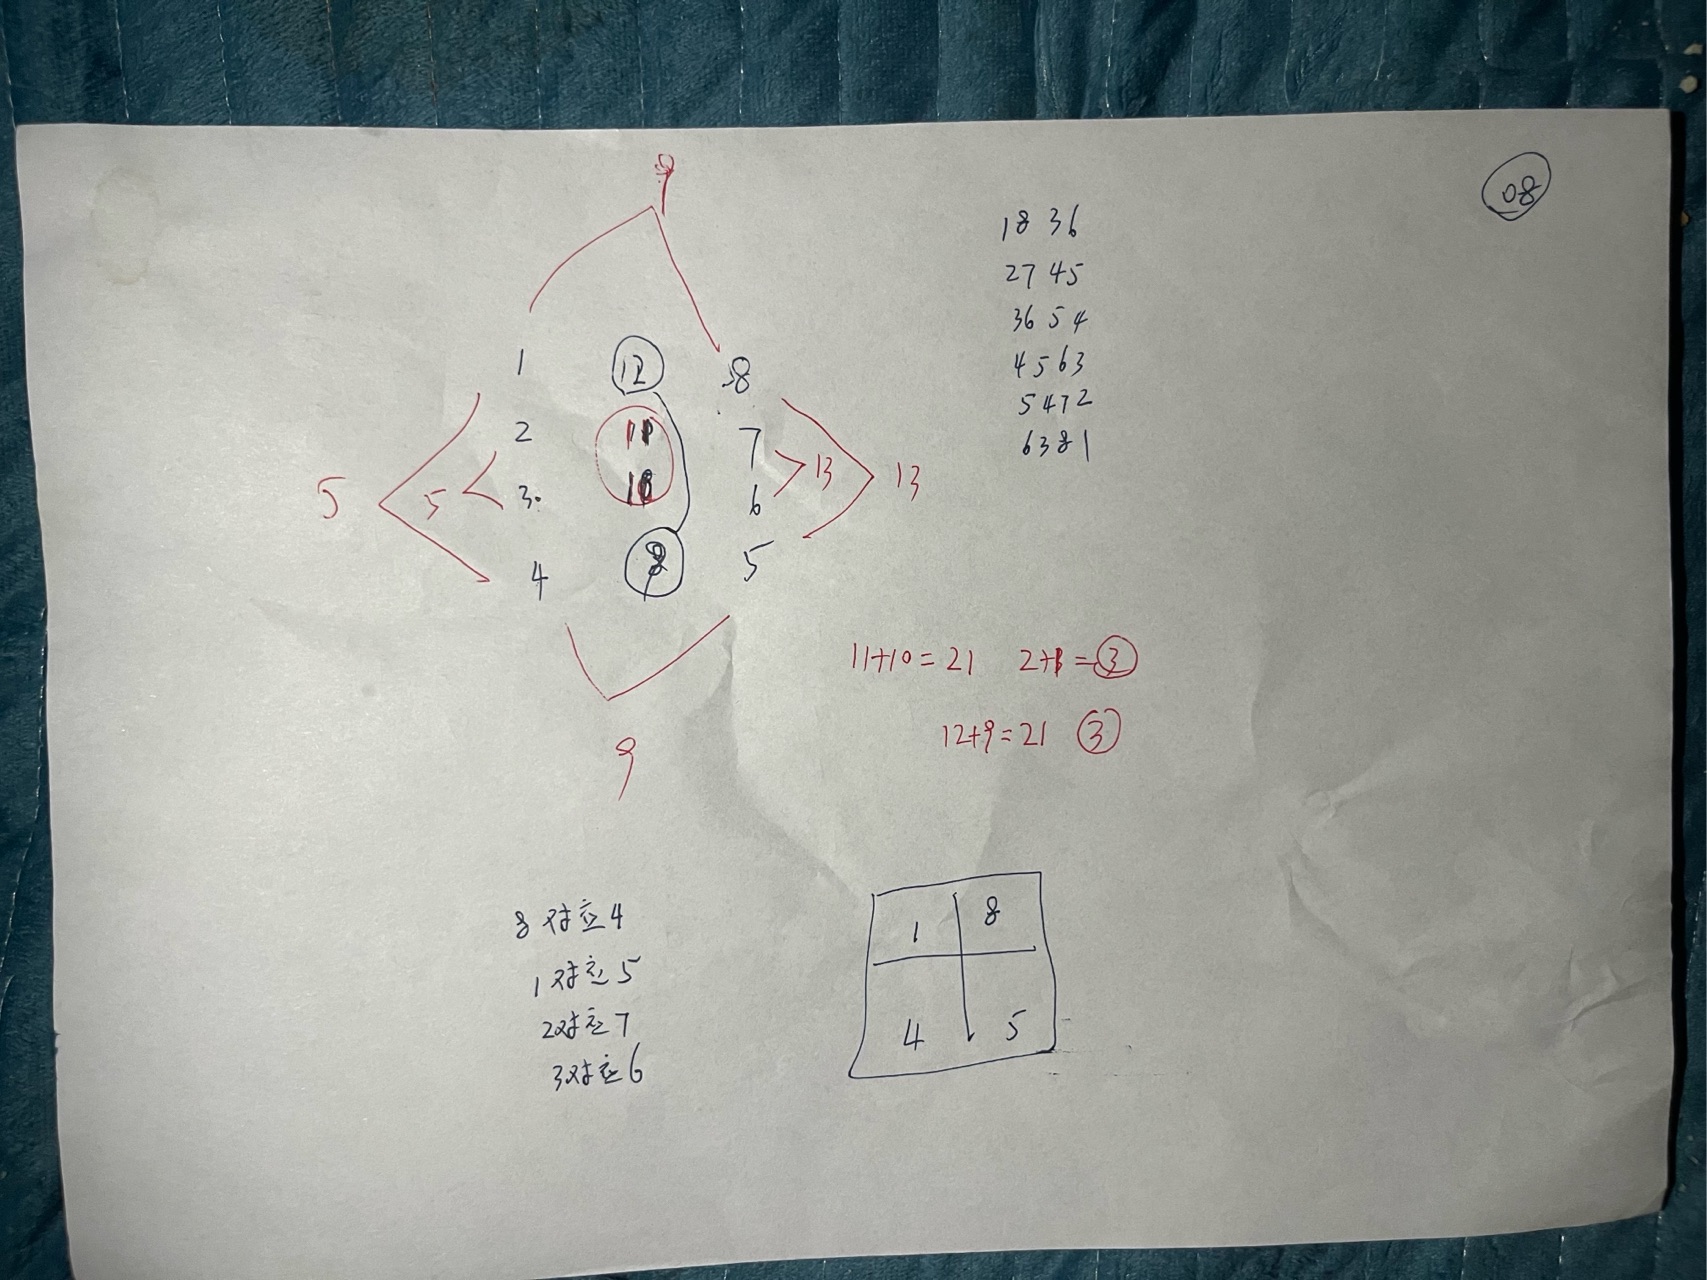 08
9
1 12 8
2 11 7
3. 10 6
4 9 5
5 5
13 13
9
18 36
27 45
36 54
45 63
5472
6381
11+10=21 2+1=3
12+9=21 3
8对应4
1对应5
2对应7
3对应6
1 8
4 5